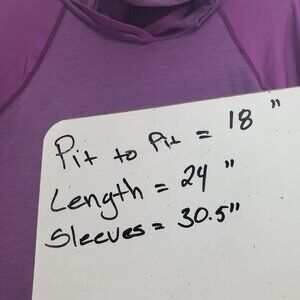 Pit to Pit = 18"
Length = 24"
Sleeves = 30.5"